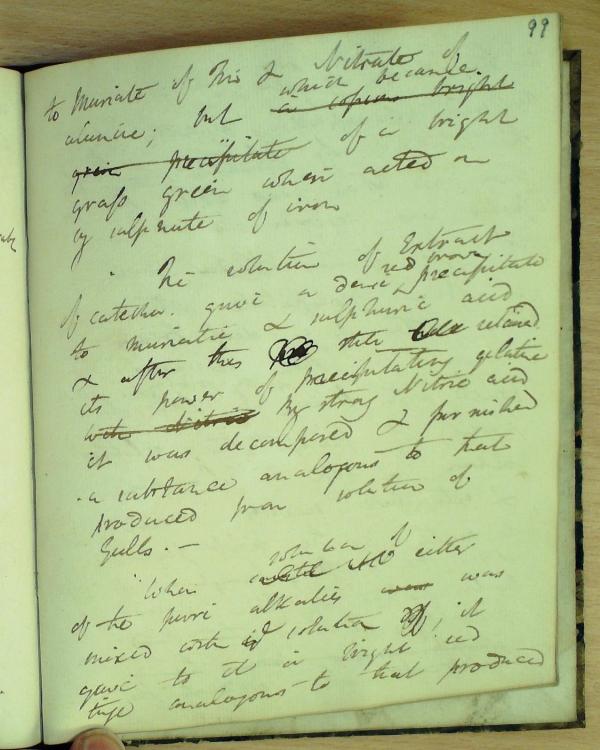 99
to Muriate of Tin & Nitrate of
alumine; but which became
a copious bright
green precipitate of a bright
grass green when acted on
by sulphate of iron
The solution of Extract
of catechu gave a dense red brown precipitate
to muriatic & sulphuric acid
& after this still retained
its power of precipitating gelatine
with Nitric By strong Nitric acid
it was decomposed & furnished
a substance analogous to that
produced from solution of
Galls. —
When solution of either
of the pure alkalies was
mixed with solution ; it
gave to it a bright red
tinge analogous to that produced